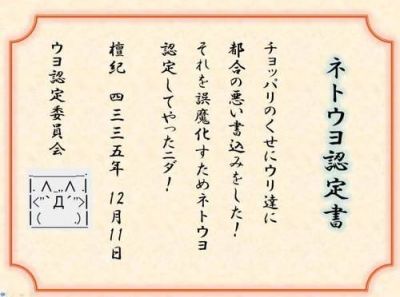 ネトウヨ認定書
チョッパリのくせにウリ達に
都合の悪い書込みをした！
それを誤魔化すためネトウヨ
認定してやったニダ！
檀紀 四三三五年 12月11日
ウヨ認定委員会
|. ∧_,,∧ .|
|<"`Д´">|
|( .)|